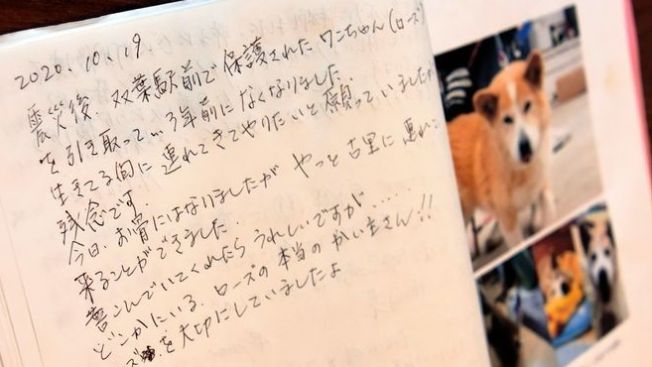 2020.10.19
震災後、双葉駅前で保護されたワンちゃん(ローズ)
を引き取って…3年前になくなりました.
生きてる内に連れてきてやりたいと願っていましたが
残念です.
今日、お骨にはなりましたが やっと古里に連れて
来ることができました.
喜こんでいてくれたらうれしいですが.....
どこかにいる、ローズの本当のかい主さん!!
ズを大切にしていましたよ